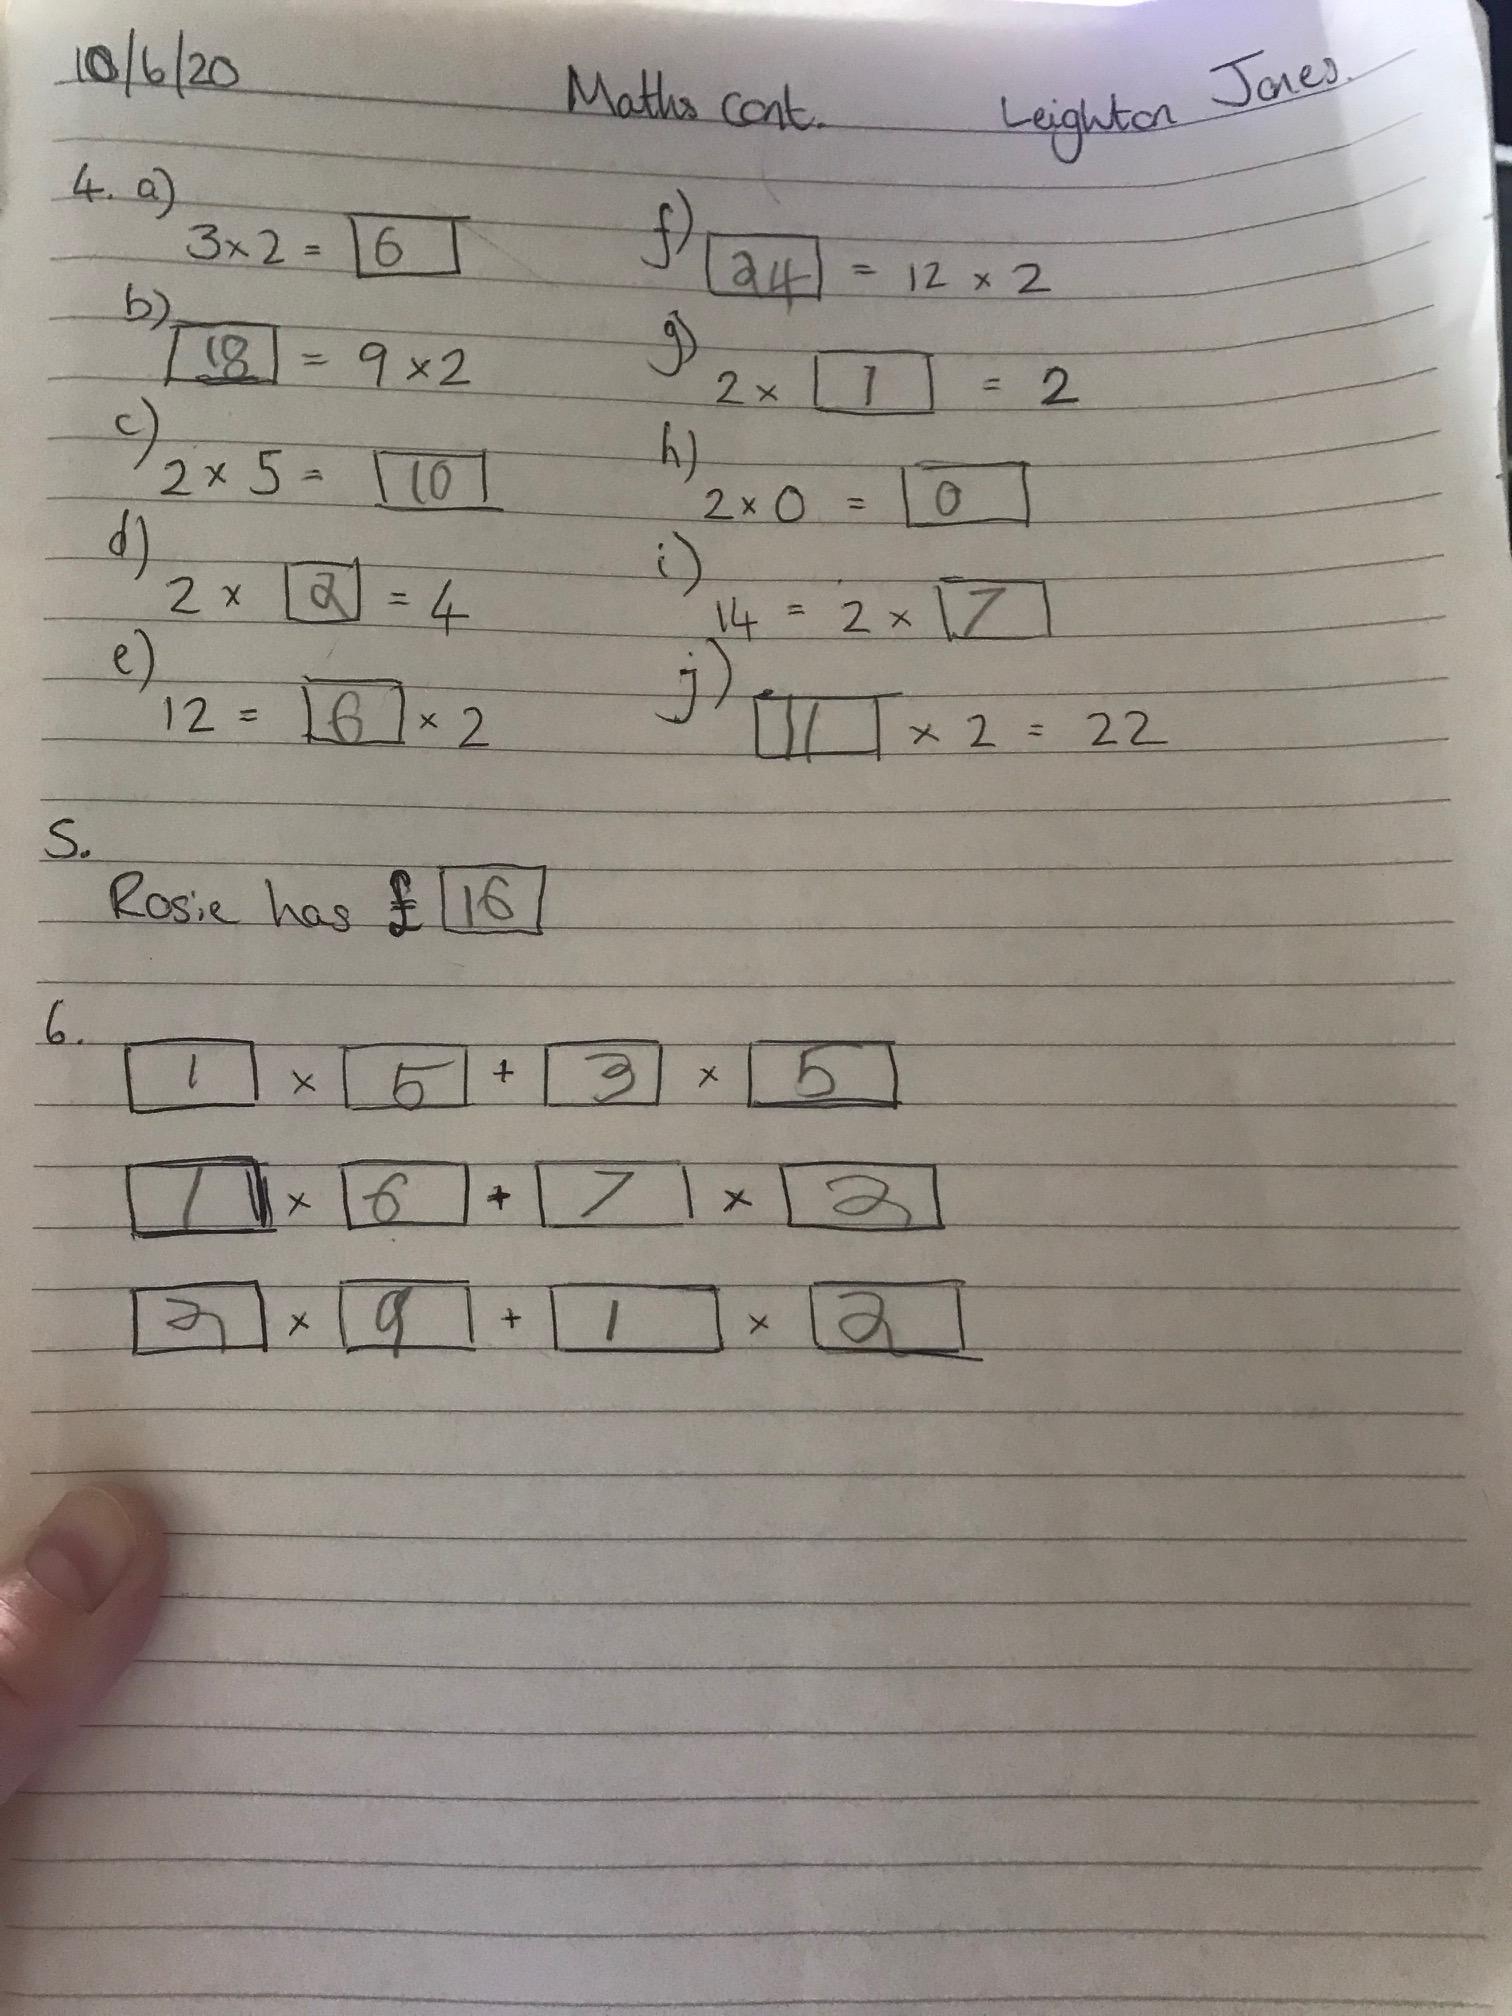 10/6/20 Maths cont. Leighton Jones.
4. a) 3 × 2 = 6
b) 18 = 9 × 2
c) 2 × 5 = 10
d) 2 × 2 = 4
e) 12 = 6 × 2
f) 24 = 12 × 2
g) 2 × 1 = 2
h) 2 × 0 = 0
i) 14 = 2 × 7
j) 11 × 2 = 22
5.
Rosie has £ 16
6.
1 × 5 + 3 × 5
1 × 6 + 7 × 2
2 × 9 + 1 × 2